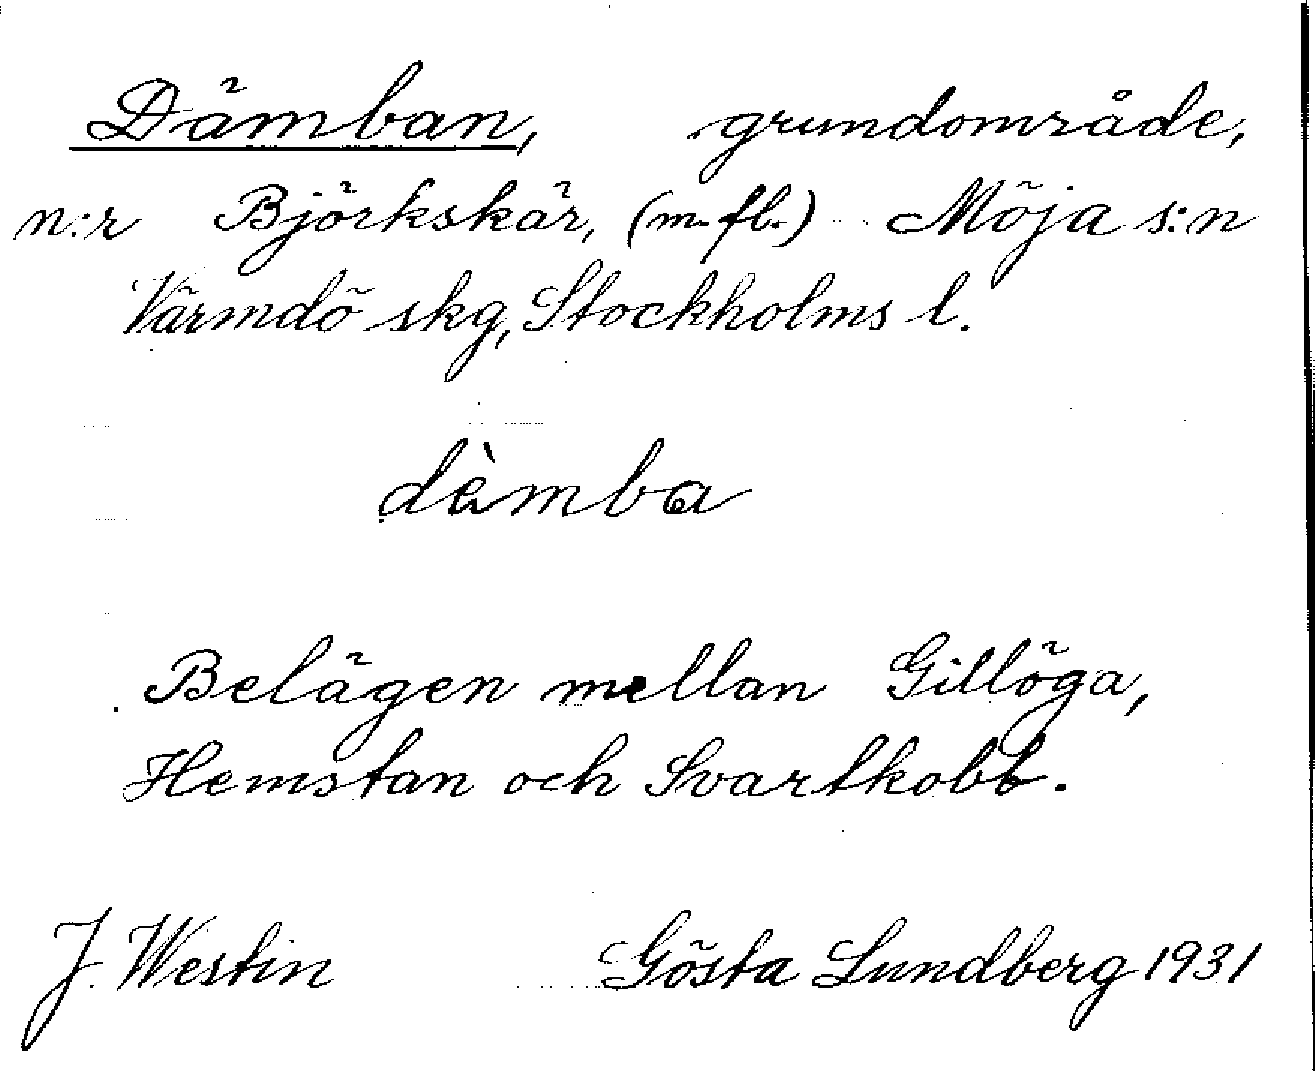 Dämban, grundområde,
n:r Björkskär, (m.fl.) Möja s:n
Värmdö skg, Stockholms l.
dèmba
Belägen mellan Gillöga,
Hemstan och Svartkobb.
J. Westin Gösta Lundberg 1931